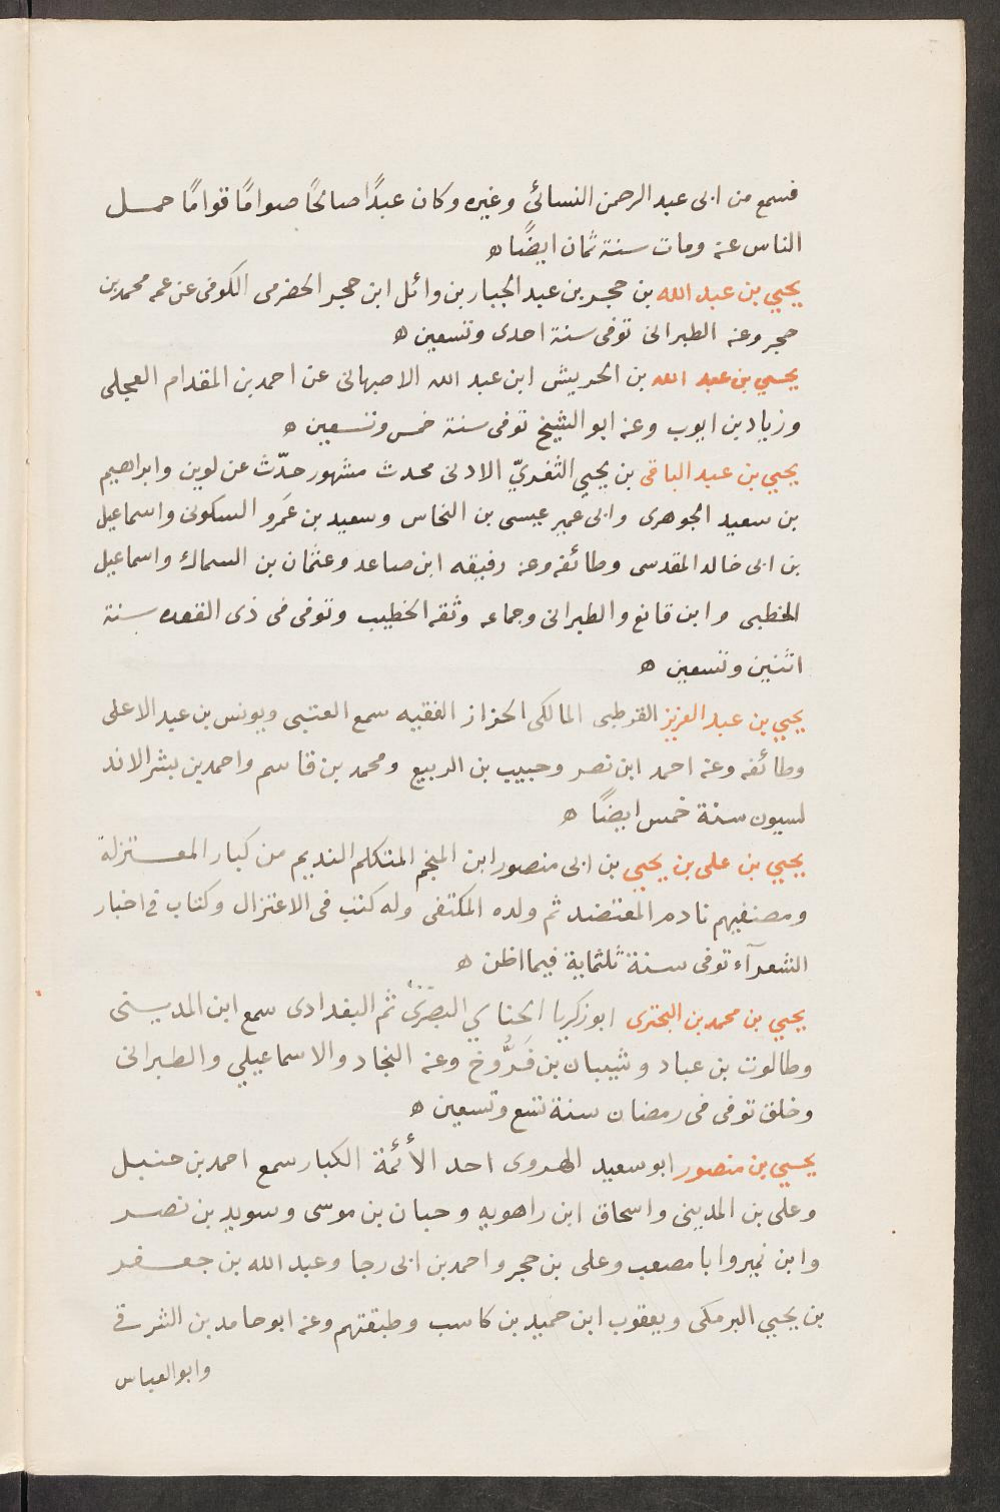 فسمع من ابى عبد الرحمن النسائى وغيره وكان عبدًا صالحًا صوامًا قوامًا حمل
الناس عنه ومات سنة ثمان ايضًا ه
يحيي بن عبد الله بن حجر بن عبد الجبار بن وائل ابن حجر الحضرمى الكوفى عن عمه محمد بن
حجر وعنه الطبرانى توفى سنة احدى وتسعين ه
يحيي بن عبد الله بن الحريش ابن عبد الله الاصبهانى عن احمد بن المقدام العجلى
وزياد بن ايوب وعنه ابو الشيخ توفى سنة خمس وتسعين ه
يحيي بن عبد الباقى بن يحيي الثغريّ الادنى محدث مشهور حدّث عن لوين وابراهيم
بن سعيد الجوهرى وابى عمير عيسى بن النحاس وسعيد بن عَمَرو السكونى واسماعيل
بن ابى خالد المقدسى وطائفه وعنه رفيقه ابن صاعد وعثمان بن السماك واسماعيل
الخطبى وابن قانع والطبرانى وجماعه وثقه الخطيب وتوفى فى ذى القعده سنة
اثنين وتسعين ه
يحيي بن عبد العزيز القرطبى المالكى الخزاز الفقيه سمع العتبى ويونس بن عبد الاعلى
وطائفه وعنه احمد ابن نصر وحبيب بن الربيع ومحمد بن قاسم واحمد بن بشر الاند
لسيون سنة خمس ايضًا ه
يحيي بن على بن يحيي بن ابى منصور ابن المنجم المتكلم النديم من كبار المعتزلة
ومصنفيهم نادم المعتضد ثم ولده المكتفى وله كتب فى الاعتزال وكتاب فى اخبار
الشعرآء توفى سنة ثلثماية فيما اظن ه
يحيي بن محمد بن البخترى ابو زكريا الحناي البصرى ثم البغدادى سمع ابن المدينى
وطالوت بن عباد وشيبان بن فَرُّوخ وعنه النجاد والاسماعيلي والطبرانى
وخلق توفى فى رمضان سنة تسع وتسعين ه
يحيي بن منصور ابو سعيد الهروى احد الأئمة الكبار سمع احمد بن حنبل
وعلى بن المدينى واسحاق ابن راهويه وحبان بن موسى وسويد بن نصر
وابن نمير وابا مصعب وعلى بن حجر واحمد بن ابى رجا وعبد الله بن جعفر
بن يحيي البرمكى ويعقوب ابن حميد بن كاسب وطبقتهم وعنه ابو حامد بن الشرقى
وابو العباس